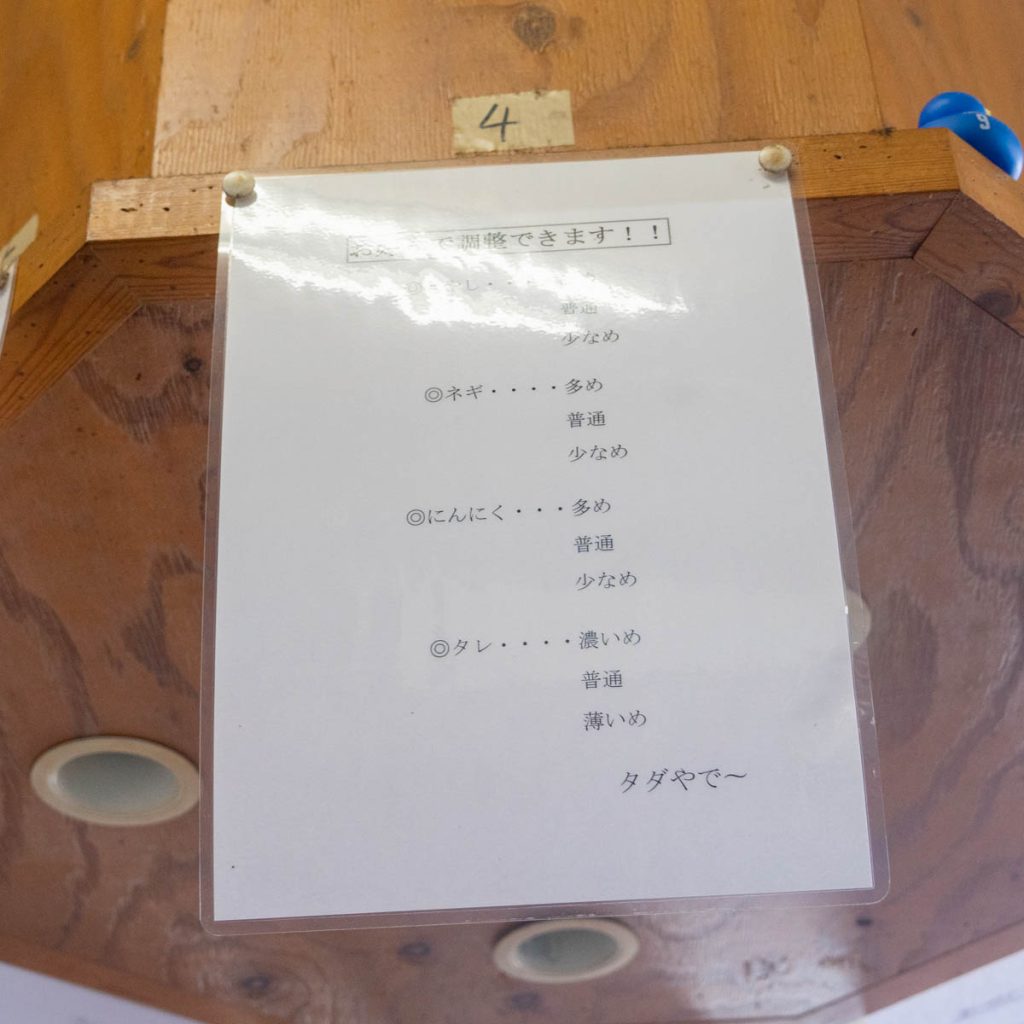 4
お好みで調整できます！！
普通
少なめ
◎ネギ・・・・多め
普通
少なめ
◎にんにく・・・多め
普通
少なめ
◎タレ・・・・濃いめ
普通
薄いめ
タダやで～